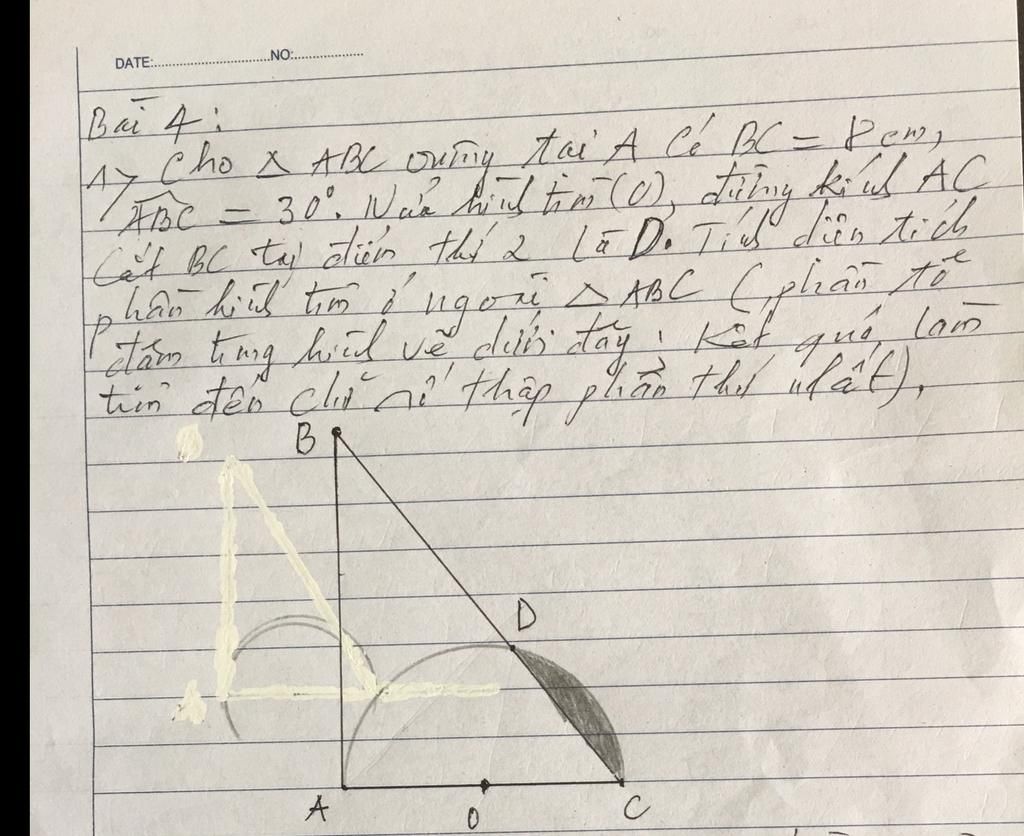 DATE:..............................NO:..................
Bài 4:
1> Cho △ ABC vuông tại A có BC = 8 cm,
ABC = 30°. Nửa hình tròn (O), đường kính AC
cắt BC tại điểm thứ 2 là D. Tính diện tích
phần hình tròn ở ngoài △ ABC (phần tô
đậm trong hình vẽ dưới đây. Kết quả làm
tròn đến chữ số thập phân thứ nhất).
B
D
A
O
C